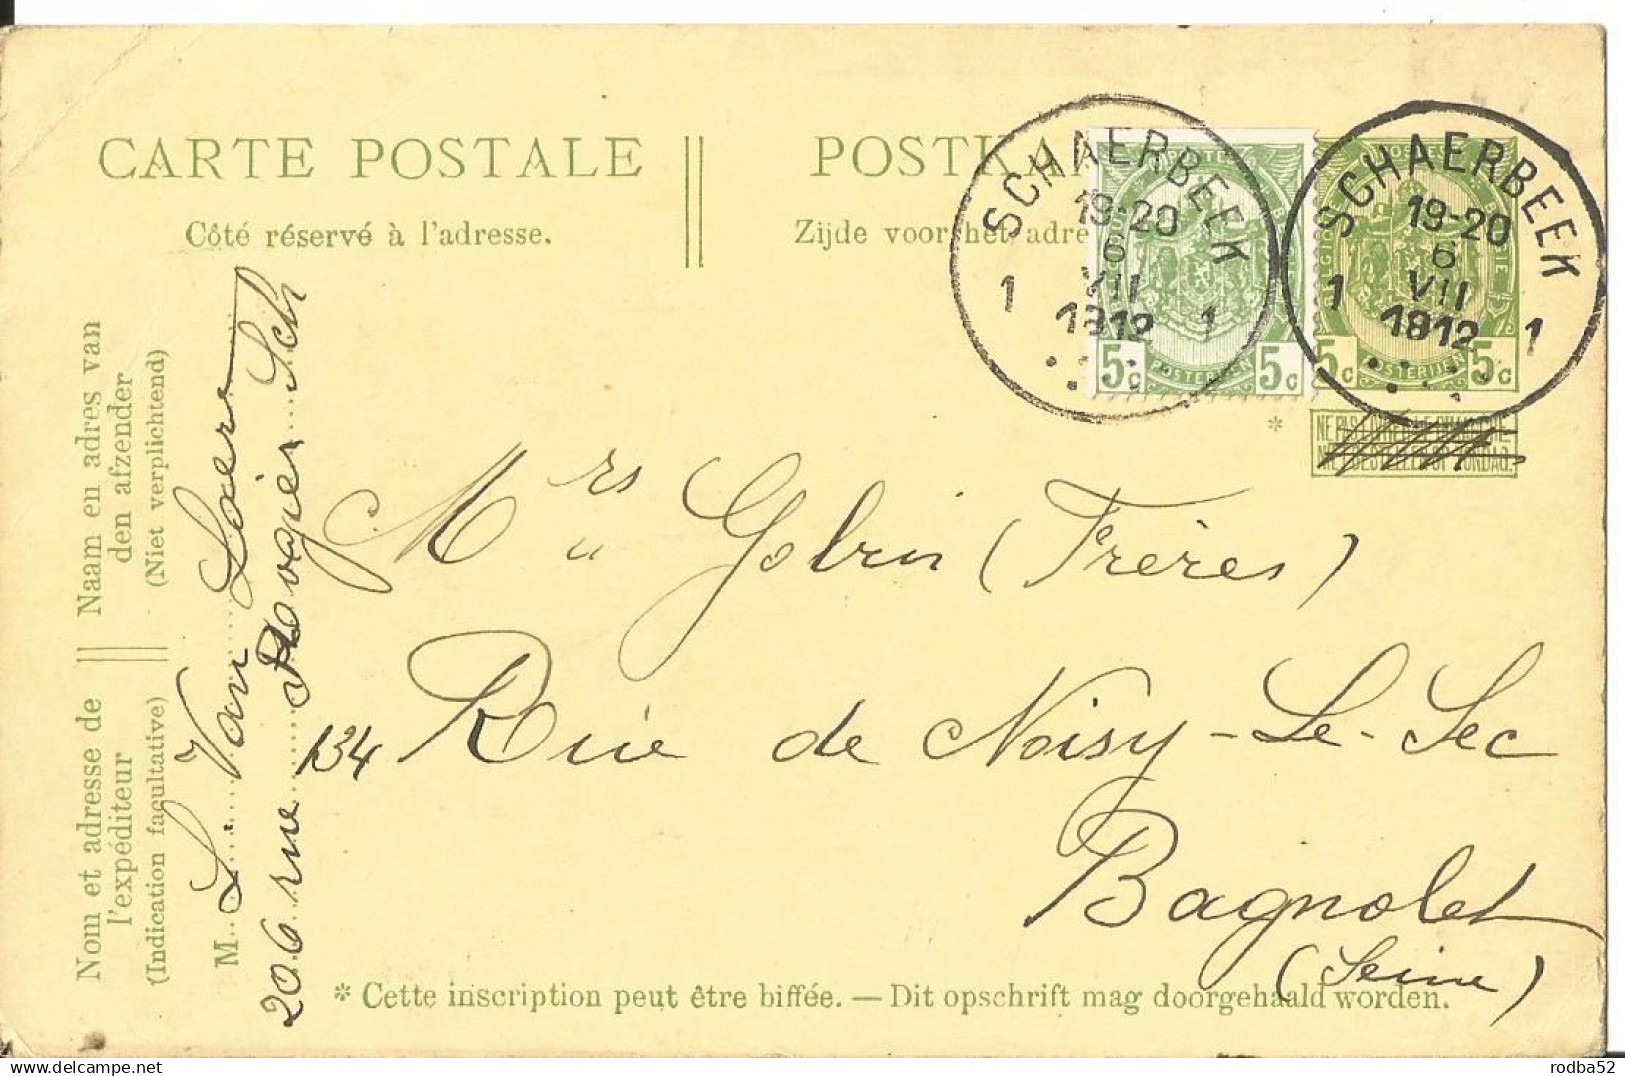 CARTE POSTALE POSTKA
Côté réservé à l'adresse. Zijde voor het adre
SCHAERBEEK
19-20
6
VII
1912
1 1
5c POSTERIJEN 5c
SCHAERBEEK
19-20
6
VII
1912
1 1
BELGIQUE BELGIE
5c POSTERIJEN 5c
*
Naam en adres van
den afzender
(Niet verplichtend)
Nom et adresse de
l'expéditeur
(Indication facultative)
M. L. Van Loere
206 rue Rogier Sch
Mrs Golrin (Frères)
134 Rue de Noisy-Le-Sec
Bagnolet
(Seine)
* Cette inscription peut être biffée. — Dit opschrift mag doorgehaald worden.
delcampe.net
rodba52